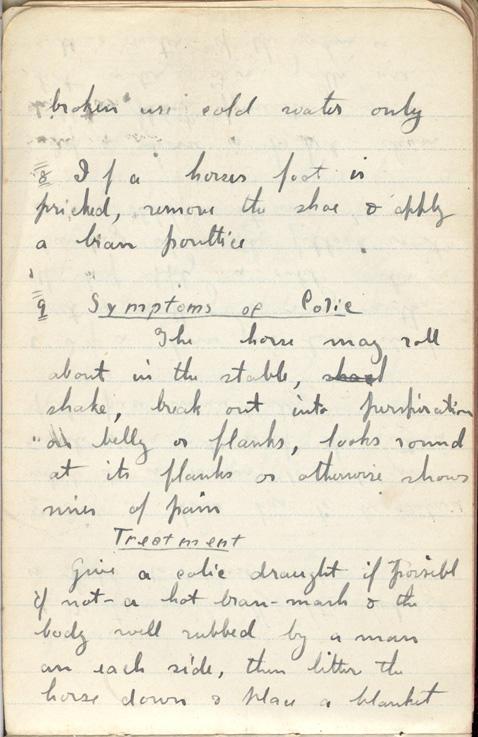 broken use cold water only
8 If a horses foot is
pricked, remove the shoe & apply
a bran poultice
9 Symptoms of Colic
The horse may roll
about in the stable,
shake, break out into perspiration
on belly or flanks, looks round
at its flanks or otherwise shows
of pain
Treatment
Give a colic draught if possibl
if not - a hot bran-mash & the
body well rubbed by a man
on each side, then litter the
horse down & place a blanket